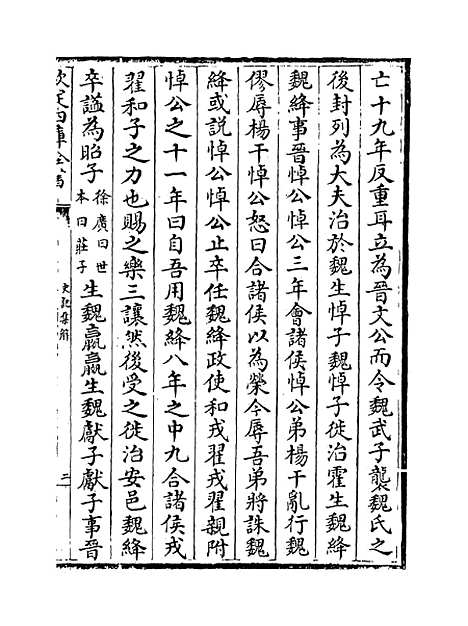 亡十九年反重耳立為晉文公而令魏武子襲魏氏之
後封列為大夫治於魏生悼子魏悼子徙治霍生魏絳
魏絳事晉悼公悼公三年會諸侯悼公弟楊干亂行魏
絳僇辱楊干悼公怒曰合諸侯以為榮今辱吾弟將誅魏
絳或說悼公悼公止卒任魏絳政使和戎翟戎翟親附
悼公之十一年曰自吾用魏絳八年之中九合諸侯戎
翟和子之力也賜之樂三讓然後受之徙治安邑魏絳
卒諡為昭子
徐廣曰世
本曰莊子
生魏嬴嬴生魏獻子獻子事晉
欽定四庫全書
史記集解
二